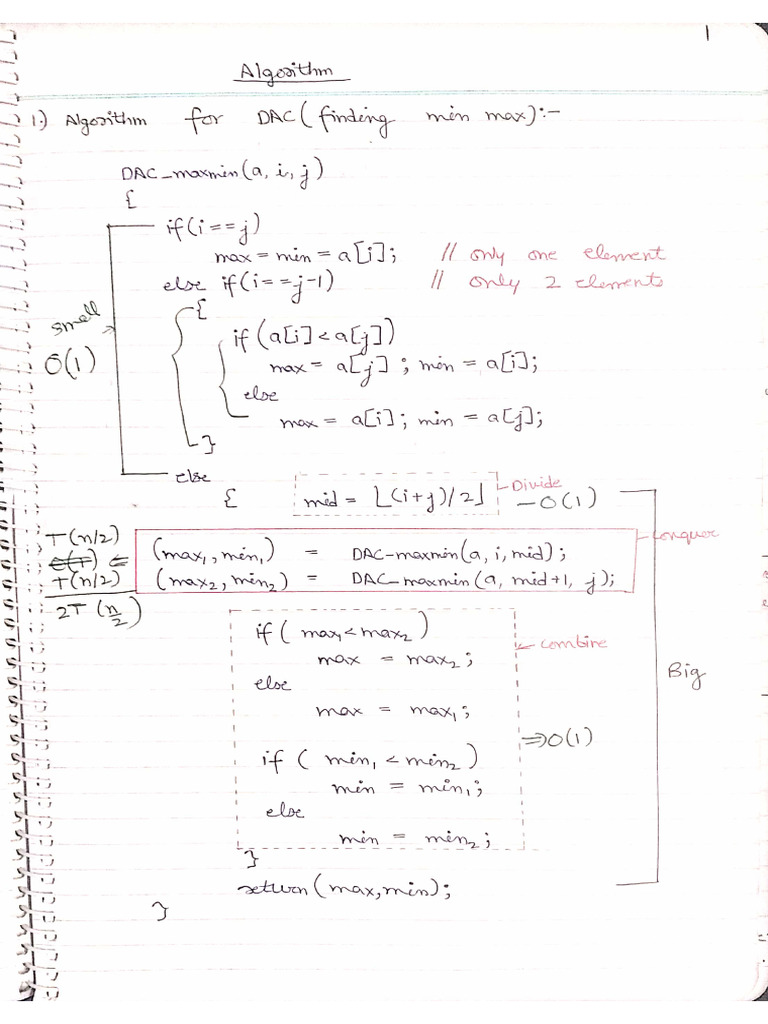 1
Algorithm
1.) Algorithm for DAC (finding min max):-
DAC_maxmin(a, i, j)
{
if(i==j)
max = min = a[i]; // only one element
else if(i==j-1) // only 2 elements
{
small
if (a[i]<a[j])
O(1)
max = a[j] ; min = a[i];
else
max = a[i] ; min = a[j];
}
else
{ mid = ⌊(i+j)/2⌋ Divide - O(1)
T(n/2) ⇐ (max₁, min₁) = DAC-maxmin(a, i, mid); conquer
T(n/2) (max₂, min₂) = DAC_maxmin(a, mid+1, j);
2T(n/2)
if( max₁<max₂) combine
max = max₂;
else
Big
max = max₁;
⇒O(1)
if ( min₁ < min₂)
min = min₁;
else
min = min₂;
}
return(max,min);
}